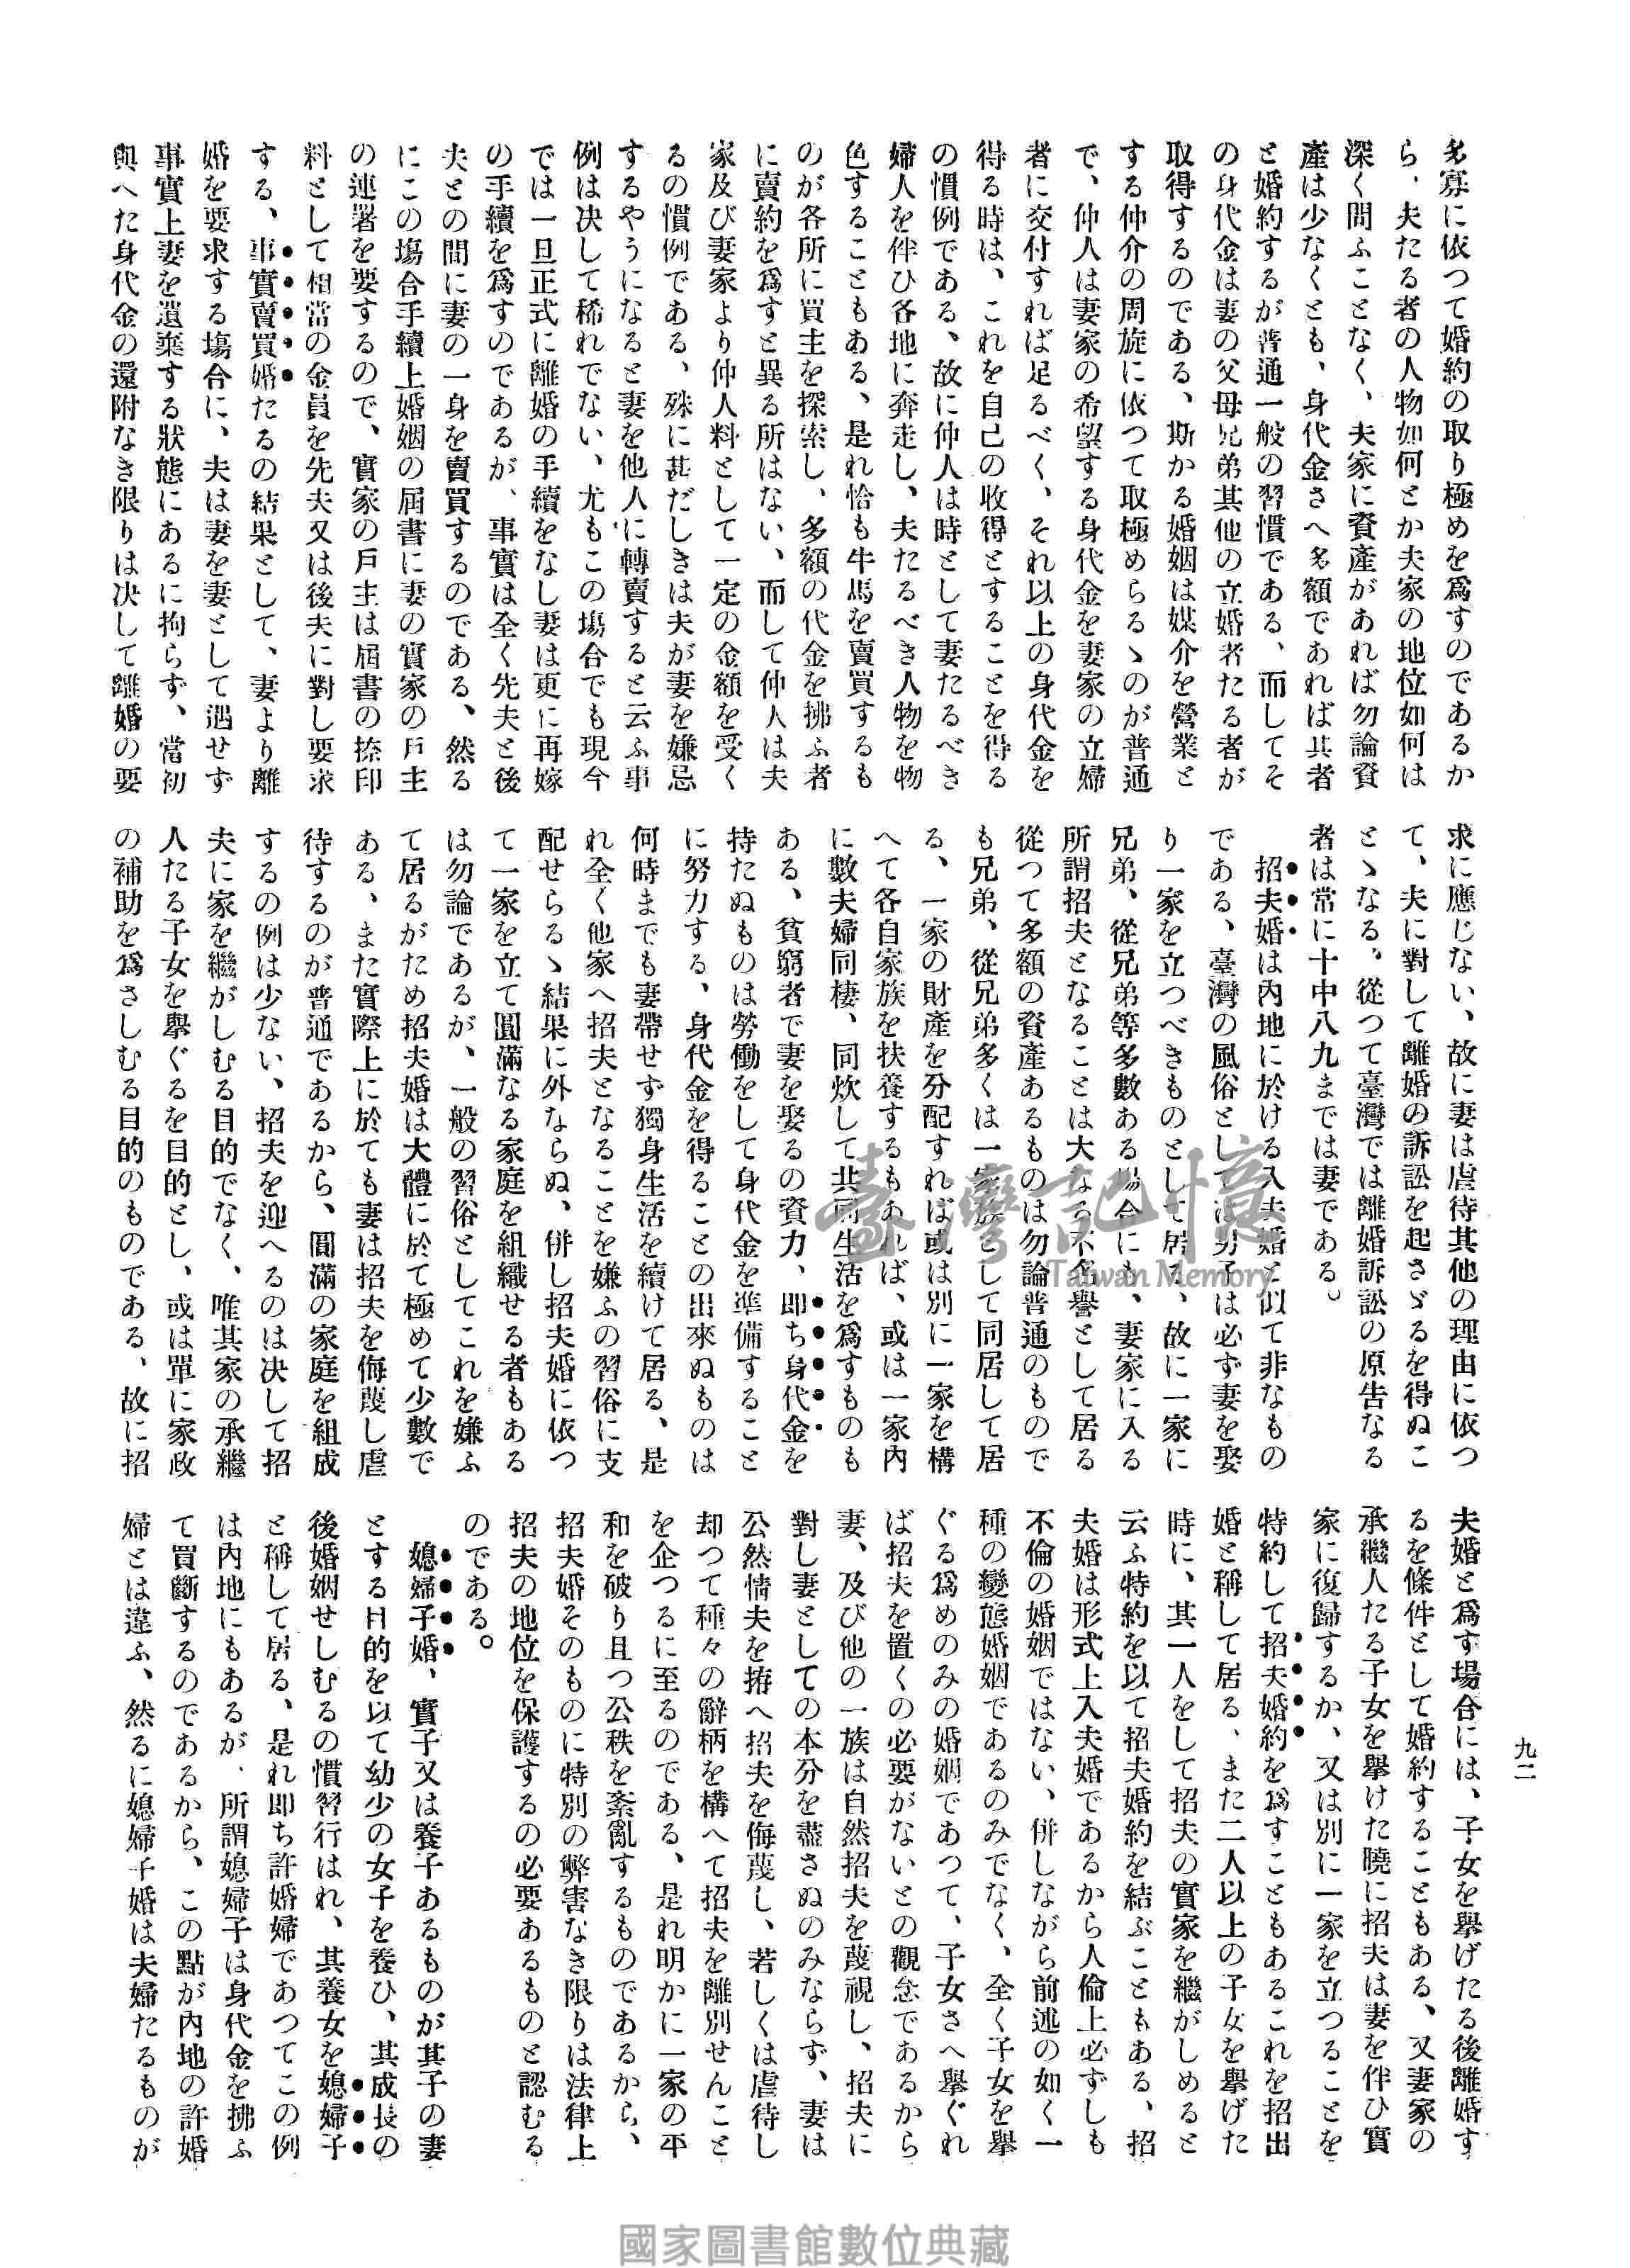 九二
多寡に依つて婚約の取り極めを爲すのであるか
ら、夫たる者の人物如何とか夫家の地位如何は
深く問ふことなく、夫家に資產があれば勿論資
產は少なくとも、身代金さへ多額であれば其者
と婚約するが普通一般の習慣である、而してそ
の身代金は妻の父母兄弟其他の立婚者たる者が
取得するのである、斯かる婚姻は媒介を營業と
する仲介の周旋に依つて取極めらるゝのが普通
で、仲人は妻家の希望する身代金を妻家の立婦
者に交付すれば足るべく、それ以上の身代金を
得る時は、これを自己の收得とすることを得る
の慣例である、故に仲人は時として妻たるべき
婦人を伴ひ各地に奔走し、夫たるべき人物を物
色することもある、是れ恰も牛馬を賣買するも
のが各所に買主を探索し、多額の代金を拂ふ者
に賣約を爲すと異る所はない、而して仲人は夫
家及び妻家より仲人料として一定の金額を受く
るの慣例である、殊に甚だしきは夫が妻を嫌忌
するやうになると妻を他人に轉賣すると云ふ事
例は决して稀れでない、尤もこの場合でも現今
では一旦正式に離婚の手續をなし妻は更に再嫁
の手續を爲すのであるが、事實は全く先夫と後
夫との間に妻の一身を賣買するのである、然る
にこの塲合手續上婚姻の屆書に妻の實家の戶主
の連署を要するので、實家の戶主は屆書の捺印
料として相當の金員を先夫又は後夫に對し要求
する、事實賣買婚たるの結果として、妻より離
婚を要求する塲合に、夫は妻を妻として遇せず
事實上妻を遺棄する狀態にあるに拘らず、當初
與へた身代金の還附なき限りは决して離婚の要
求に應じない、故に妻は虐待其他の理由に依つ
て、夫に對して離婚の訴訟を起さゞるを得ぬこ
とゝなる、從つて臺灣では離婚訴訟の原吿なる
者は常に十中八九までは妻である。
招夫婚は內地に於ける入夫婚と似て非なもの
である、臺灣の風俗としては男子は必ず妻を娶
り一家を立つべきものとして居る、故に一家に
兄弟、從兄弟等多數ある場合にも、妻家に入る
所謂招夫となることは大なる不名譽として居る
從つて多額の資產あるものは勿論普通のもので
も兄弟、從兄弟多くは一家族として同居して居
る、一家の財產を分配すれば或は別に一家を構
へて各自家族を扶養するもあれば、或は一家內
に數夫婦同棲、同炊して共同生活を爲すものも
ある、貧窮者で妻を娶るの資力、卽ち身代金を
持たぬものは勞働をして身代金を準備すること
に努力する、身代金を得ることの出來ぬものは
何時までも妻帶せず獨身生活を續けて居る、是
れ全く他家へ招夫となることを嫌ふの習俗に支
配せらるゝ結果に外ならぬ、併し招夫婚に依つ
て一家を立て圓滿なる家庭を組織せる者もある
は勿論であるが、一般の習俗としてこれを嫌ふ
て居るがため招夫婚は大體に於て極めて少數で
ある、また實際上に於ても妻は招夫を侮蔑し虐
待するのが普通であるから、圓滿の家庭を組成
するの例は少ない、招夫を迎へるのは决して招
夫に家を繼がしむる目的でなく、唯其家の承繼
人たる子女を擧ぐるを目的とし、或は單に家政
の補助を爲さしむる目的のものである、故に招
夫婚と爲す場合には、子女を擧げたる後離婚す
るを條件として婚約することもある、又妻家の
承繼人たる子女を擧けた曉に招夫は妻を伴ひ實
家に復歸するか、又は別に一家を立つることを
特約して招夫婚約を爲すこともあるこれを招出
婚と稱して居る、また二人以上の子女を擧げた
時に、其一人をして招夫の實家を繼がしめると
云ふ特約を以て招夫婚約を結ぶこともある、招
夫婚は形式上入夫婚であるから人倫上必ずしも
不倫の婚姻ではない、併しながら前述の如く一
種の變態婚姻であるのみでなく、全く子女を擧
ぐる爲めのみの婚姻であつて、子女さへ擧ぐれ
ば招夫を置くの必要がないとの觀念であるから
妻、及び他の一族は自然招夫を蔑視し、招夫に
對し妻としての本分を盡さぬのみならず、妻は
公然情夫を拵へ招夫を侮蔑し、若しくは虐待し
却つて種々の辭柄を構へて招夫を離別せんこと
を企つるに至るのである、是れ明かに一家の平
和を破り且つ公秩を紊亂するものであるから、
招夫婚そのものに特別の弊害なき限りは法律上
招夫の地位を保護するの必要あるものと認むる
のである。
媳婦子婚、實子又は養子あるものが其子の妻
とする目的を以て幼少の女子を養ひ、其成長の
後婚姻せしむるの慣習行はれ、其養女を媳婦子
と稱して居る、是れ卽ち許婚婦であつてこの例
は內地にもあるが、所謂媳婦子は身代金を拂ふ
て買斷するのであるから、この點が內地の許婚
婦とは違ふ、然るに媳婦子婚は夫婦たるものが
臺灣記憶
Taiwan Memory
國家圖書館數位典藏